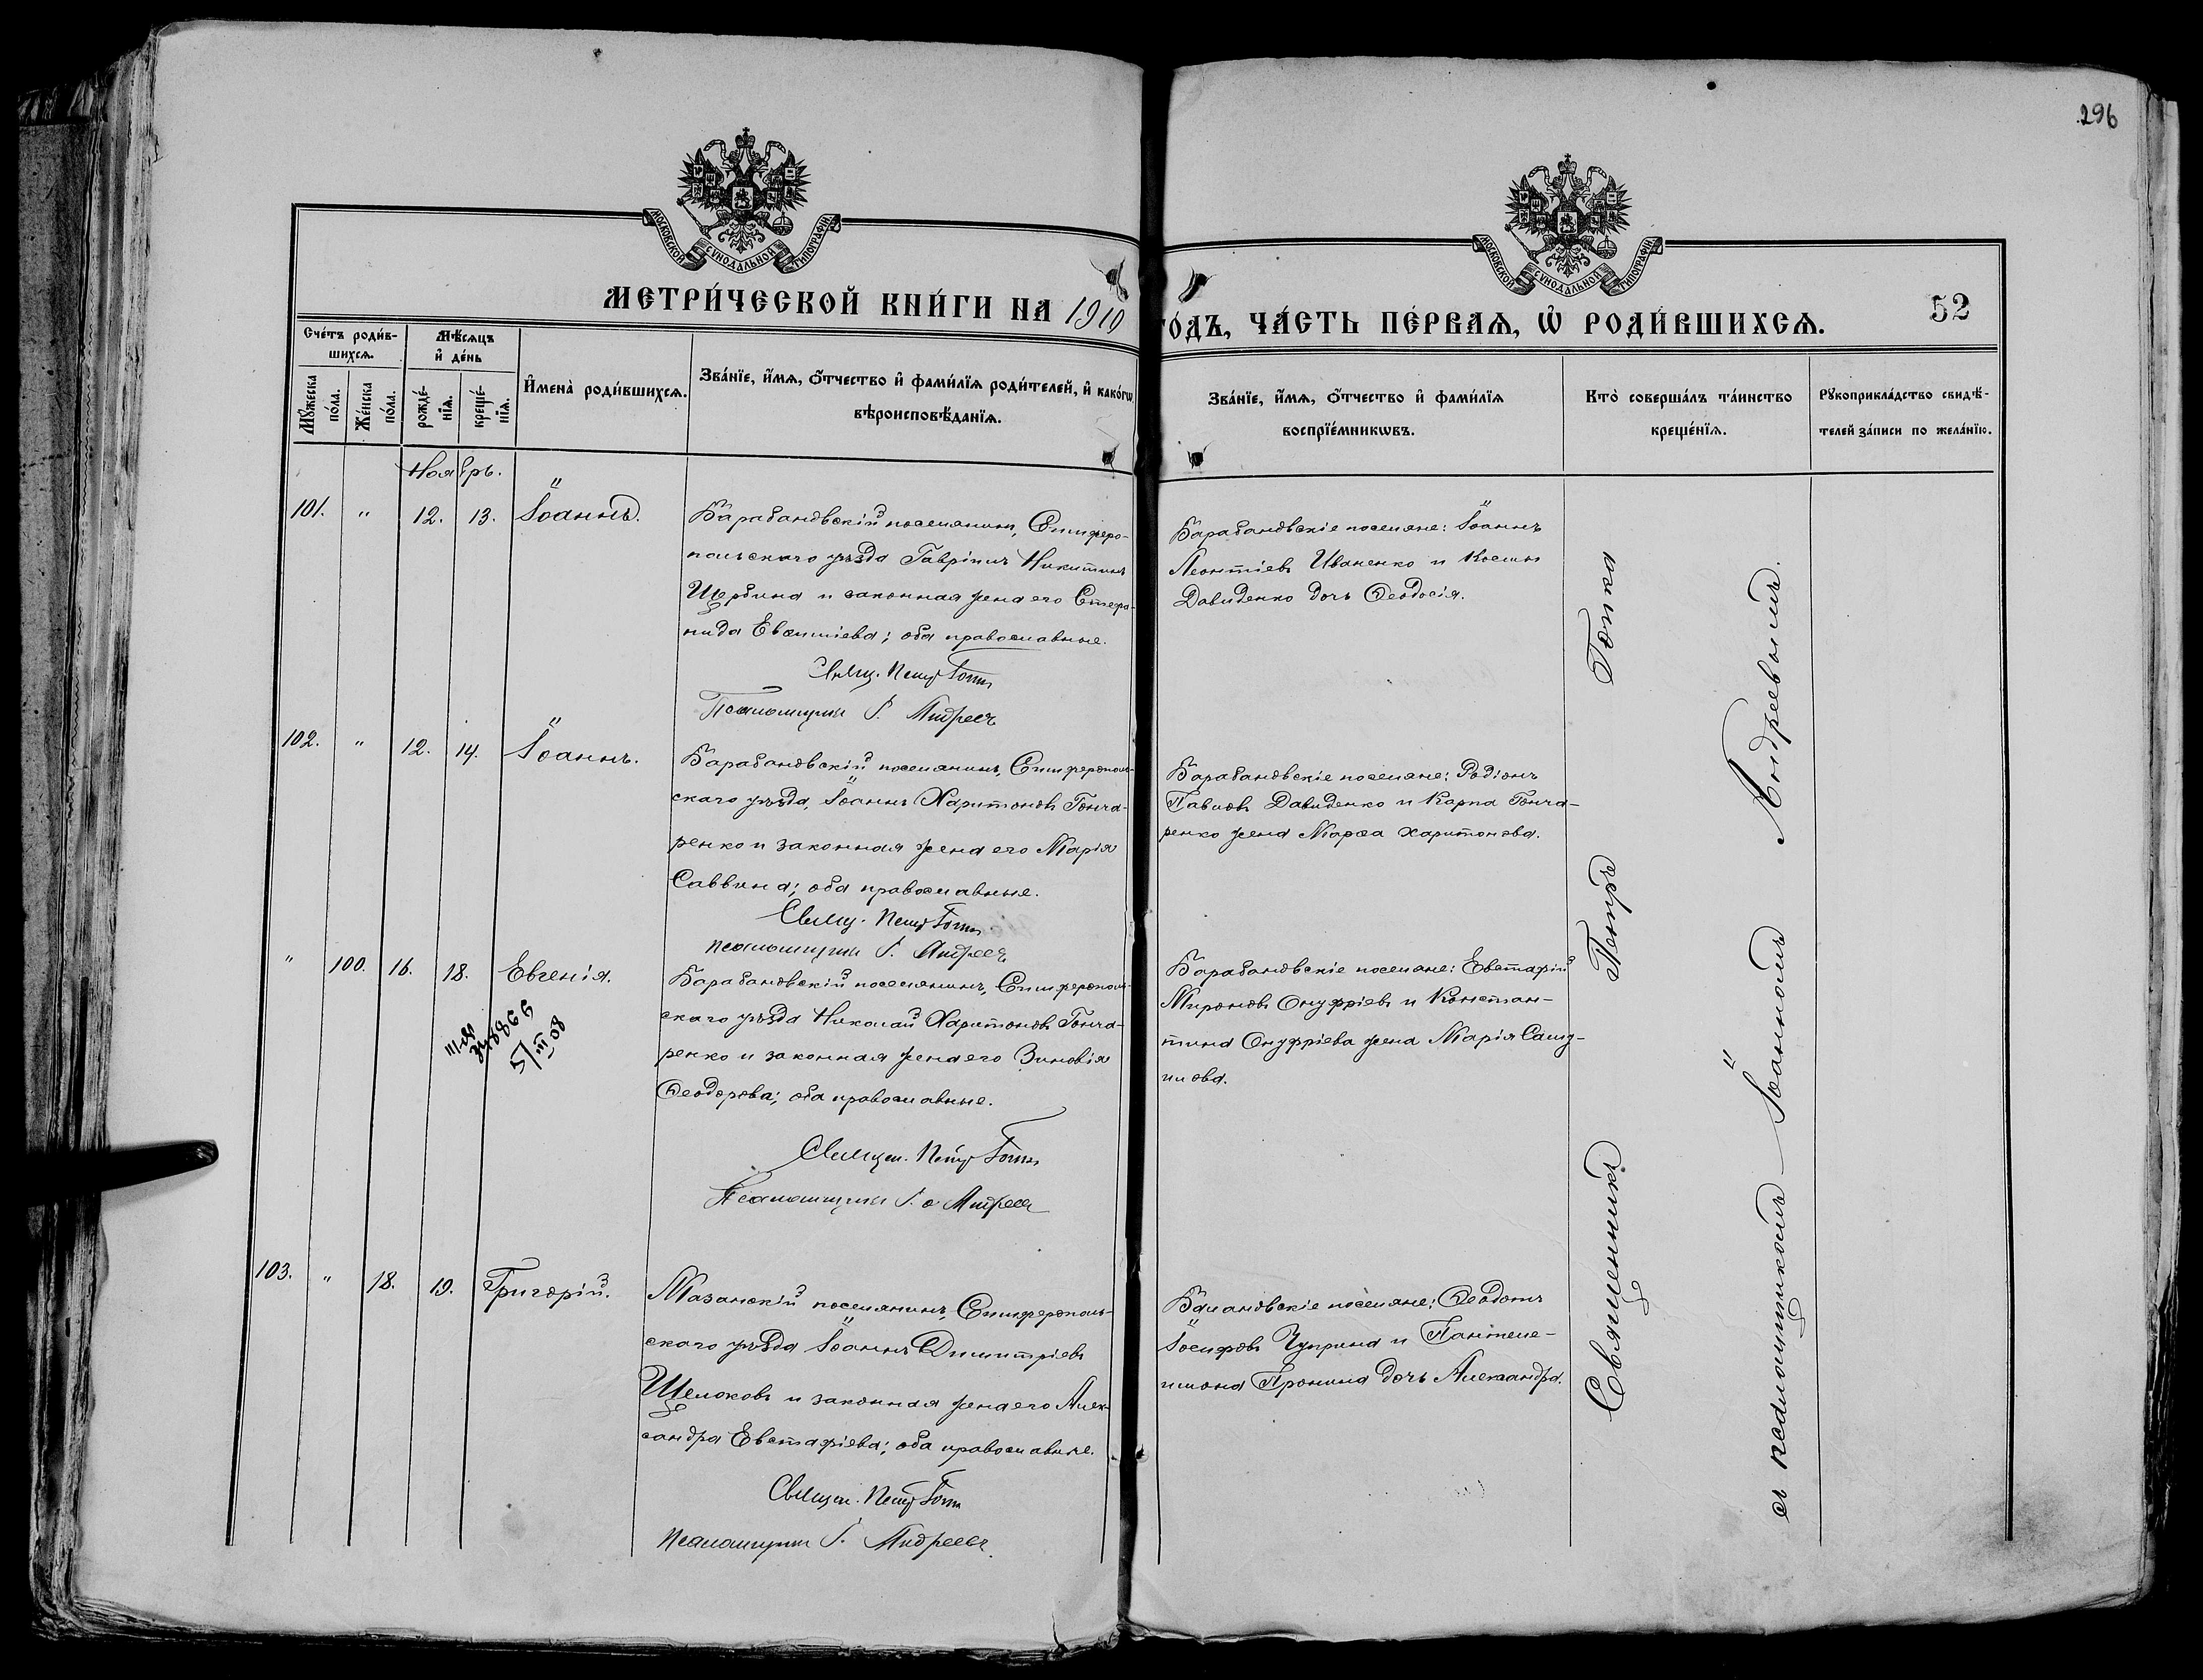 296
МОСКОВСКОЙ СѴНОДАЛЬНОЙ ТИПОГРАФІИ
МОСКОВСКОЙ СѴНОДАЛЬНОЙ ТИПОГРАФІИ
МЕТРИ́ЧЕСКОЙ КНИ́ГИ НА 1910
ГО́ДЪ, ЧА́СТЬ ПЕ́РВАѦ, Ѽ РОДИ́ВШИХСѦ.
52
Сче́тъ роди́в-
шихсѧ.
Мꙋ́жеска по́ла.
Же́нска по́ла.
Мѣ́сѧцъ
и҆ де́нь
рожде́-
нїѧ.
креще́-
нїѧ.
И҆мена̀ роди́вшихсѧ.
Зва́нїе, и҆́мѧ, ѻ҆́тчество и҆ фами́лїѧ роди́телей, и҆ како́гѡ
вѣроисповѣ́данїѧ.
Зва́нїе, и҆́мѧ, ѻ҆́тчество и҆ фами́лїѧ
воспрїе́мникѡвъ.
Кто̀ соверша́лъ та́инство
креще́нїѧ.
Рꙋкоприкла́дство свидѣ́-
телей за́писи по жела́нїю.
Ноябрь.
101. " 12. 13. Іоаннъ.
Барабановскій поселянинъ, Симферо-
польскаго уѣзда Гавріилъ Никитинъ
Щербина и законная жена его Стефа-
нида Евѳиміева; оба православные.
Свящ. Петръ Гопка
Псаломщикъ І. Андреевъ
Барабановскіе поселяне: Іоаннъ
Леонтіевъ Иваненко и Космы
Давиденко дочь Ѳеодосія.
102. " 12. 14. Іоаннъ.
Барабановскій поселянинъ, Симферополь-
скаго уѣзда, Іоаннъ Харитоновъ Гонча-
ренко и законная жена его Марія
Саввина; оба православные.
Свящ. Петръ Гопка
псаломщикъ І. Андреевъ
Барабановскіе поселяне: Родіонъ
Павловъ Давиденко и Карпа Гонча-
ренко жена Марѳа Харитонова.
" 100. 16. 18. Евгенія.
Барабановскій поселянинъ, Симферополь-
скаго уѣзда Николай Харитоновъ Гонча-
ренко и законная жена его Зиновія
Ѳеодорова; оба православные.
Священ. Петръ Гопка
Псаломщикъ І. Андреевъ
Барабановскіе поселяне: Евстафій
Мироновъ Онуфріевъ и Констан-
тина Онуфріева жена Марія Саму-
илова.
103. " 18. 19. Григорій.
Мазанскій поселянинъ, Симферополь-
скаго уѣзда Іоаннъ Димитріевъ
Щелоковъ и законная жена его Алек-
сандра Евстафіева; оба православные.
Священ. Петръ Гопка
псаломщикъ І. Андреевъ
Балановскіе поселяне: Ѳеодотъ
Іосифовъ Чуприна и Пантеле-
имона Пронина дочь Александра.
Священникъ Петръ Гопка
съ псаломщикомъ Іоанномъ Андреевымъ.